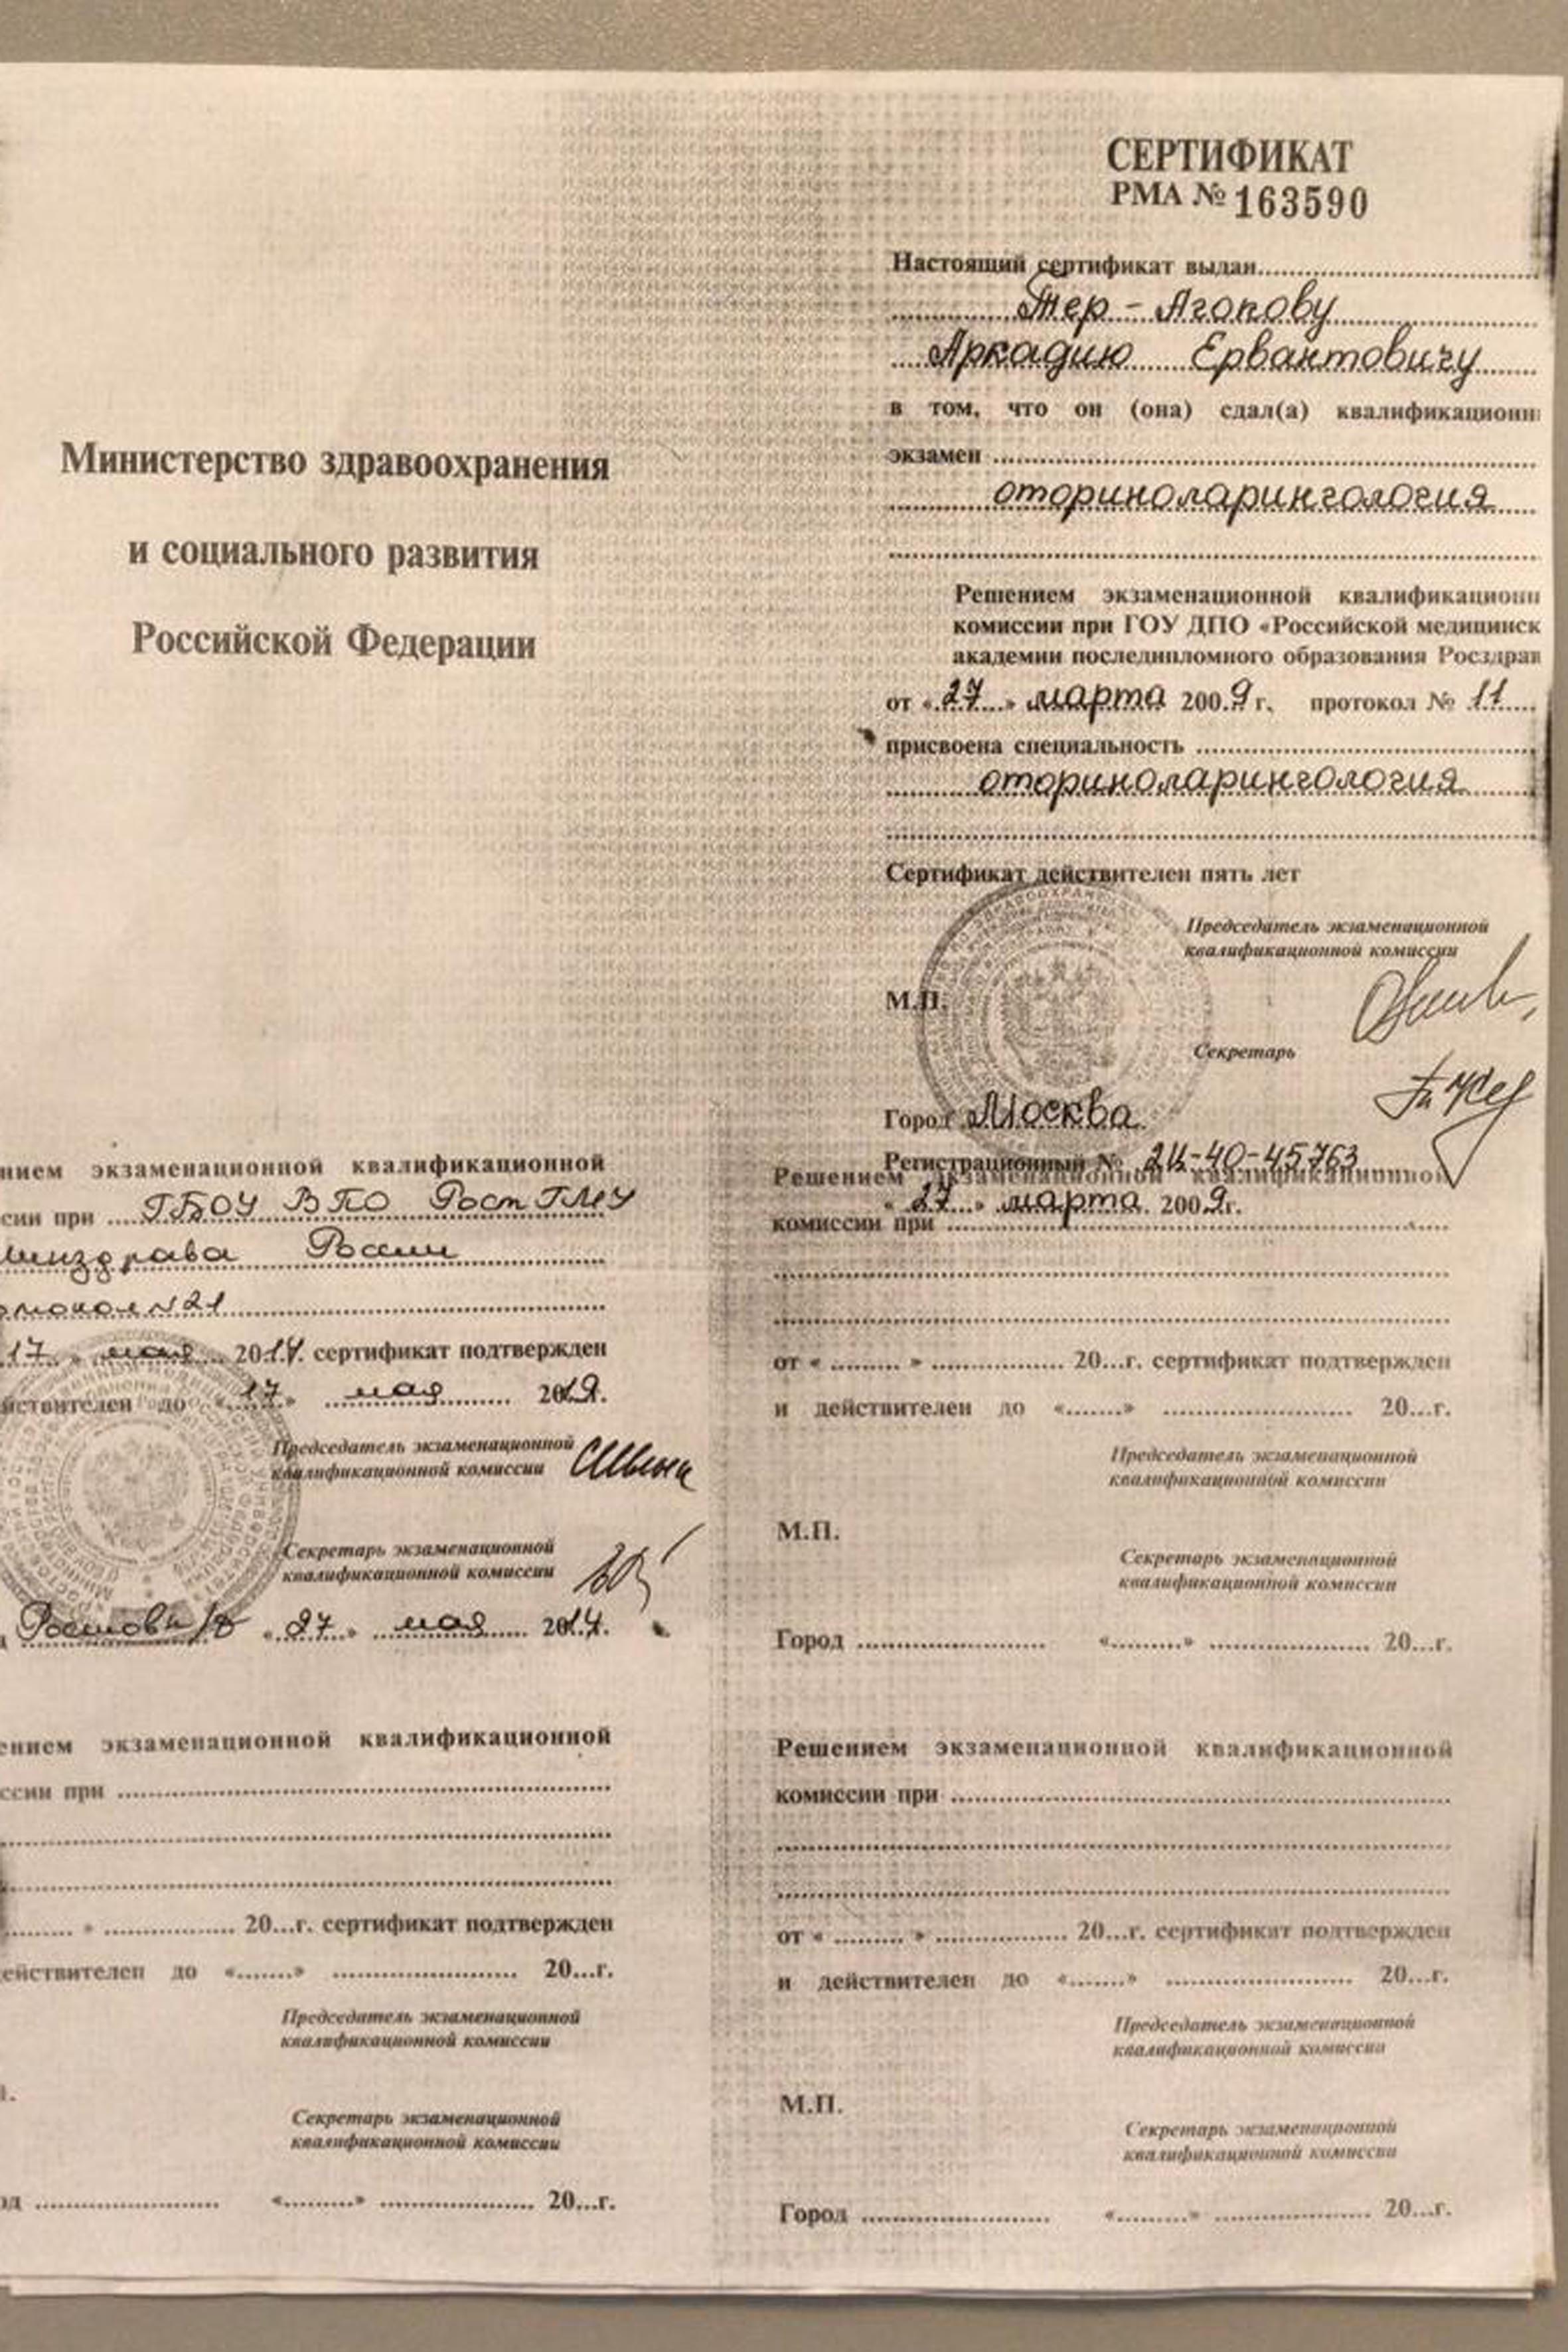 Министерство здравоохранения
и социального развития
Российской Федерации
СЕРТИФИКАТ
РМА № 163590
Настоящий сертификат выдан
Тер-Агопову
Аркадию Ервантовичу
в том, что он (она) сдал(а) квалификационн
экзамен
оториноларингология
Решением экзаменационной квалификационн
комиссии при ГОУ ДПО «Российской медицинск
академии последипломного образования Росздрав
от «27» марта 2009 г. протокол № 11
присвоена специальность
оториноларингология
Сертификат действителен пять лет
Председатель экзаменационной
квалификационной комиссии
М.П.
Секретарь
Город Москва
Регистрационный № 2И-40-45763
«27» марта 2009г.
нием экзаменационной квалификационной
сии при ГБОУ ВПО РостГМУ
Минздрава России
отокол №21
17 » мая 2014г. сертификат подтвержден
йствителен до «17» мая 2019.
Председатель экзаменационной
квалификационной комиссии
Секретарь экзаменационной
квалификационной комиссии
Ростов н/Д «27» мая 2014г.
Решением экзаменационной квалификационной
комиссии при
от « » 20...г. сертификат подтвержден
и действителен до « » 20...г.
Председатель экзаменационной
квалификационной комиссии
М.П.
Секретарь экзаменационной
квалификационной комиссии
Город « » 20...г.
ением экзаменационной квалификационной
ссии при
» 20...г. сертификат подтвержден
ействителен до « » 20...г.
Председатель экзаменационной
квалификационной комиссии
Секретарь экзаменационной
квалификационной комиссии
од « » 20...г.
Решением экзаменационной квалификационной
комиссии при
от « » 20...г. сертификат подтвержден
и действителен до « » 20...г.
Председатель экзаменационной
квалификационной комиссии
М.П.
Секретарь экзаменационной
квалификационной комиссии
Город « » 20...г.